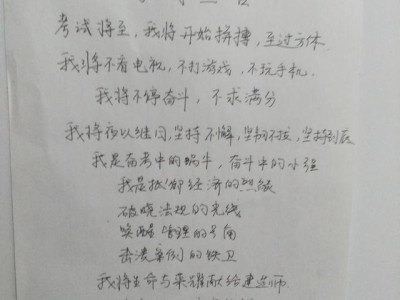 考试将至，我将开始拼搏，至过方休
我将不看电视，不打游戏，不玩手机．
我将不停奋斗，不求满分
我将夜以继日，坚持不懈，坚韧不拔，坚持到底
我是备考中的蜗牛，奋斗中的小强
我是抵御经济的烈焰
破晓法规的光线
唤醒管理的号角
击溃案例的铁卫
我将生命与荣耀献给建造师